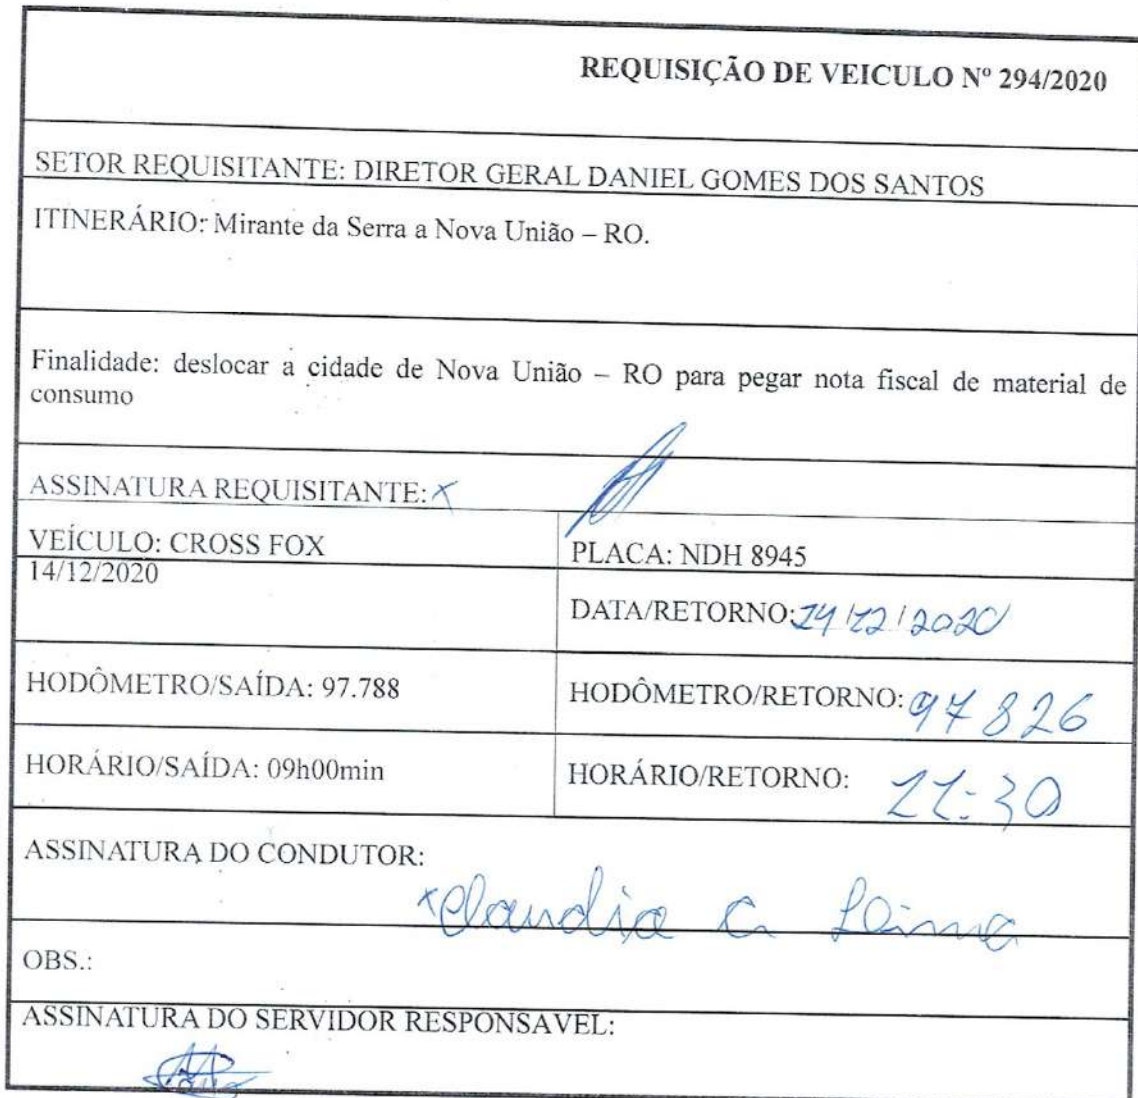 REQUISIÇÃO DE VEICULO Nº 294/2020
SETOR REQUISITANTE: DIRETOR GERAL DANIEL GOMES DOS SANTOS
ITINERÁRIO: Mirante da Serra a Nova União – RO.
Finalidade: deslocar a cidade de Nova União – RO para pegar nota fiscal de material de
consumo
ASSINATURA REQUISITANTE: x
VEÍCULO: CROSS FOX
14/12/2020
PLACA: NDH 8945
DATA/RETORNO: 14/12/2020
HODÔMETRO/SAÍDA: 97.788
HODÔMETRO/RETORNO: 97826
HORÁRIO/SAÍDA: 09h00min
HORÁRIO/RETORNO: 11:30
ASSINATURA DO CONDUTOR:
x Claudia C Lima
OBS.:
ASSINATURA DO SERVIDOR RESPONSAVEL: